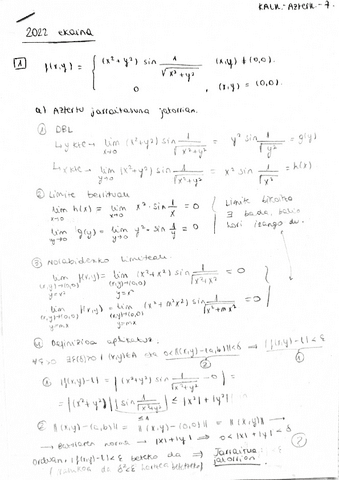 KALK.- Azterk - 7.
2022 ekaina
1 f(x,y) = { (x²+y²) sin 1/√(x²+y²) (x,y) ≠ (0,0).
0 , (x,y) = (0,0).
a) Aztertu jarraitasuna jatorrian.
① DBL
↳ y kte → lim x→0 (x²+y²) sin 1/√(x²+y²) = y² sin 1/√y² = g(y)
↳ x kte → lim y→0 (x²+y²) sin 1/√(x²+y²) = x² sin 1/√x² = h(x)
② Limite berrituak
lim x→0 h(x) = lim x→0 x² · sin 1/x = 0
lim y→0 g(y) = lim y→0 y² · sin 1/y = 0
Limite bikoitza
∃ bada, balio
hori izango du.
③ Norabidezko limiteak.
lim (x,y)→(0,0) y=x² f(x,y) = lim (x,y)→(0,0) y=x² sin = 0
lim (x,y)→(0,0) y=mx f(x,y) = lim (x,y)→(0,0) y=mx (x²+m²x²) sin 1/√(x²+m²x²) = 0
④ Definizioa aplikatuz.
∀ε>0 ∃δ(ε)>0 / (x,y)∈A eta 0<‖(x,y)-(a,b)‖<δ ⟹ |f(x,y)-l|<ε
② ①
① |f(x,y)-l| = |(x²+y²) sin 1/√(x²+y²) - 0| =
= |(x²+y²)| |sin 1/√(x²+y²)| ≤ |x²|+|y²|
≤1
② ‖(x,y)-(a,b)‖ = ‖(x,y)-(0,0)‖ = ‖(x,y)‖ →
→ norma → |x|+|y| ⟹ 0<|x|+|y|<δ
Orduan, |f(x,y)-l|<ε beteko da ⟹ Jarraitua
da δ²<ε jatorrian.